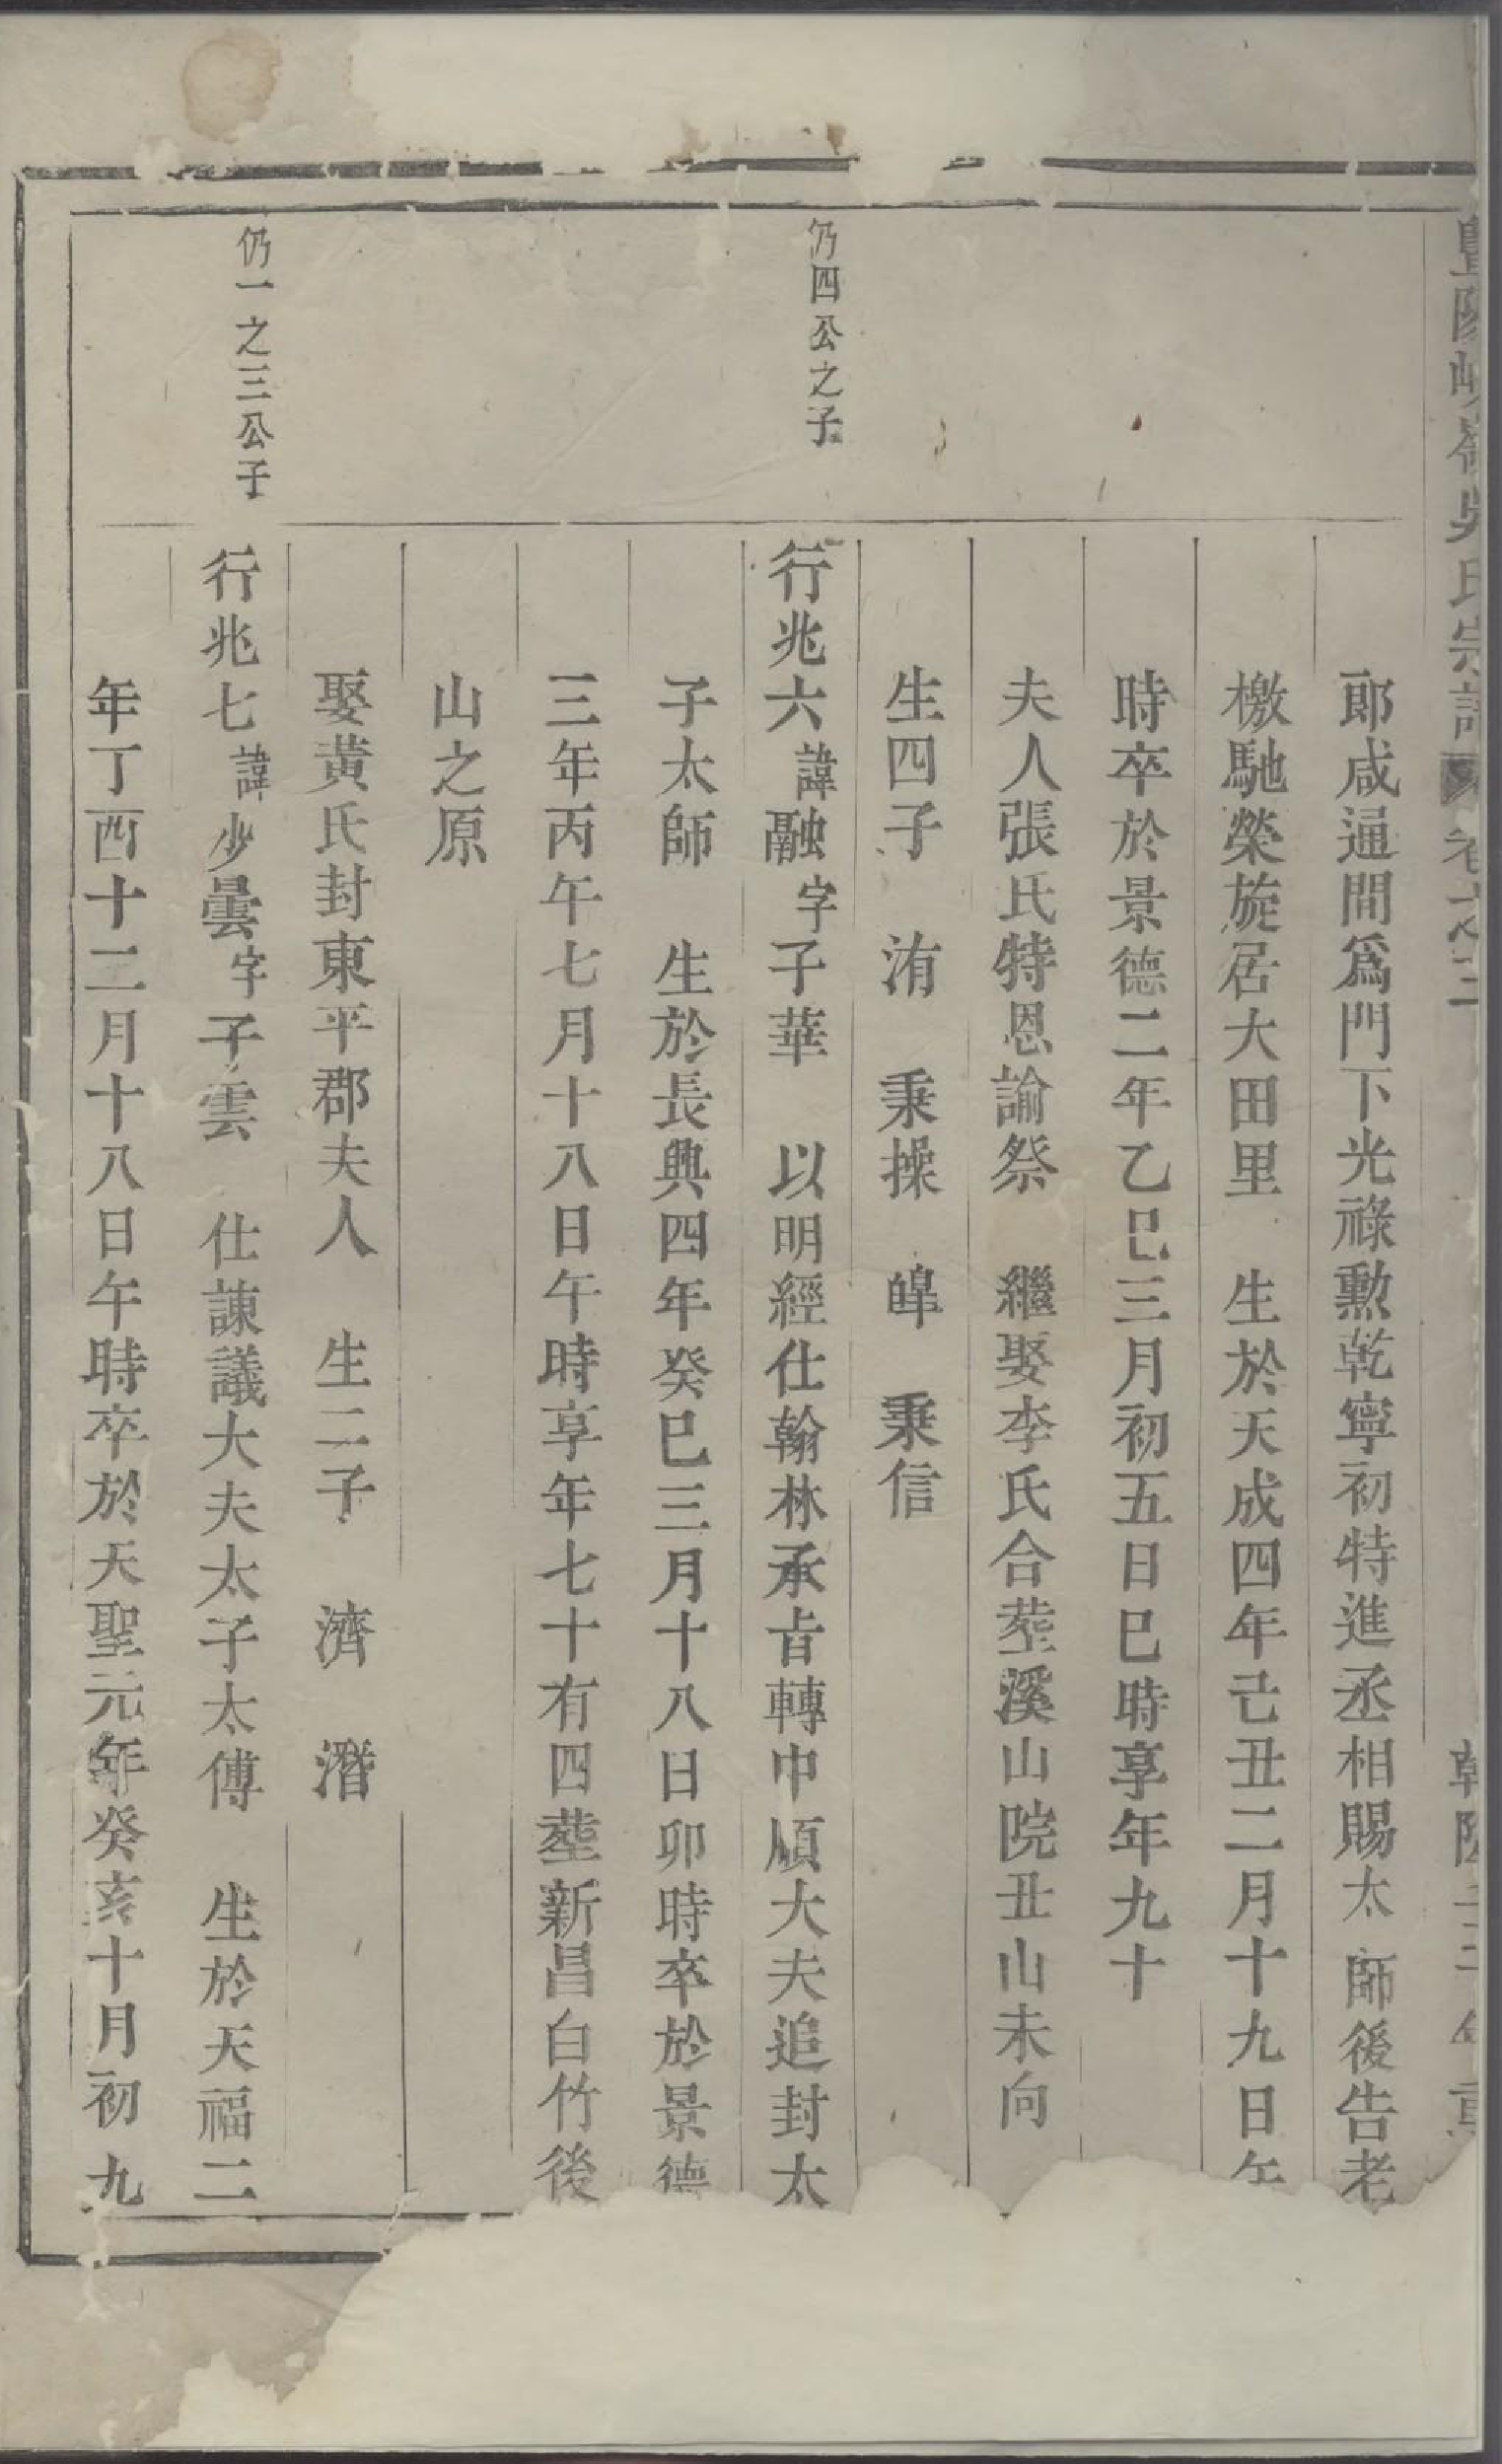 暨陽 吳氏宗譜 卷
郎咸通間爲門下光祿勲乾寧初特進丞相賜太師後告老
檄馳榮旋居大田里 生於天成四年己丑二月十九日午
時卒於景德二年乙巳三月初五日巳時享年九十
夫人張氏特恩諭祭 繼娶李氏合塟溪山院丑山未向
生四子 洧 秉操 皥 秉信
仍四公之子
行兆六諱融字子華 以明經仕翰林承旨轉中順大夫追封太
子太師 生於長興四年癸巳三月十八日卯時卒於景德
三年丙午七月十八日午時享年七十有四塟新昌白竹後
山之原
娶黄氏封東平郡夫人 生二子 濟 潛
仍一之三公子
行兆七諱少曇字子雲 仕諫議大夫太子太傅 生於天福二
年丁酉十二月十八日午時卒於天聖元年癸亥十月初九